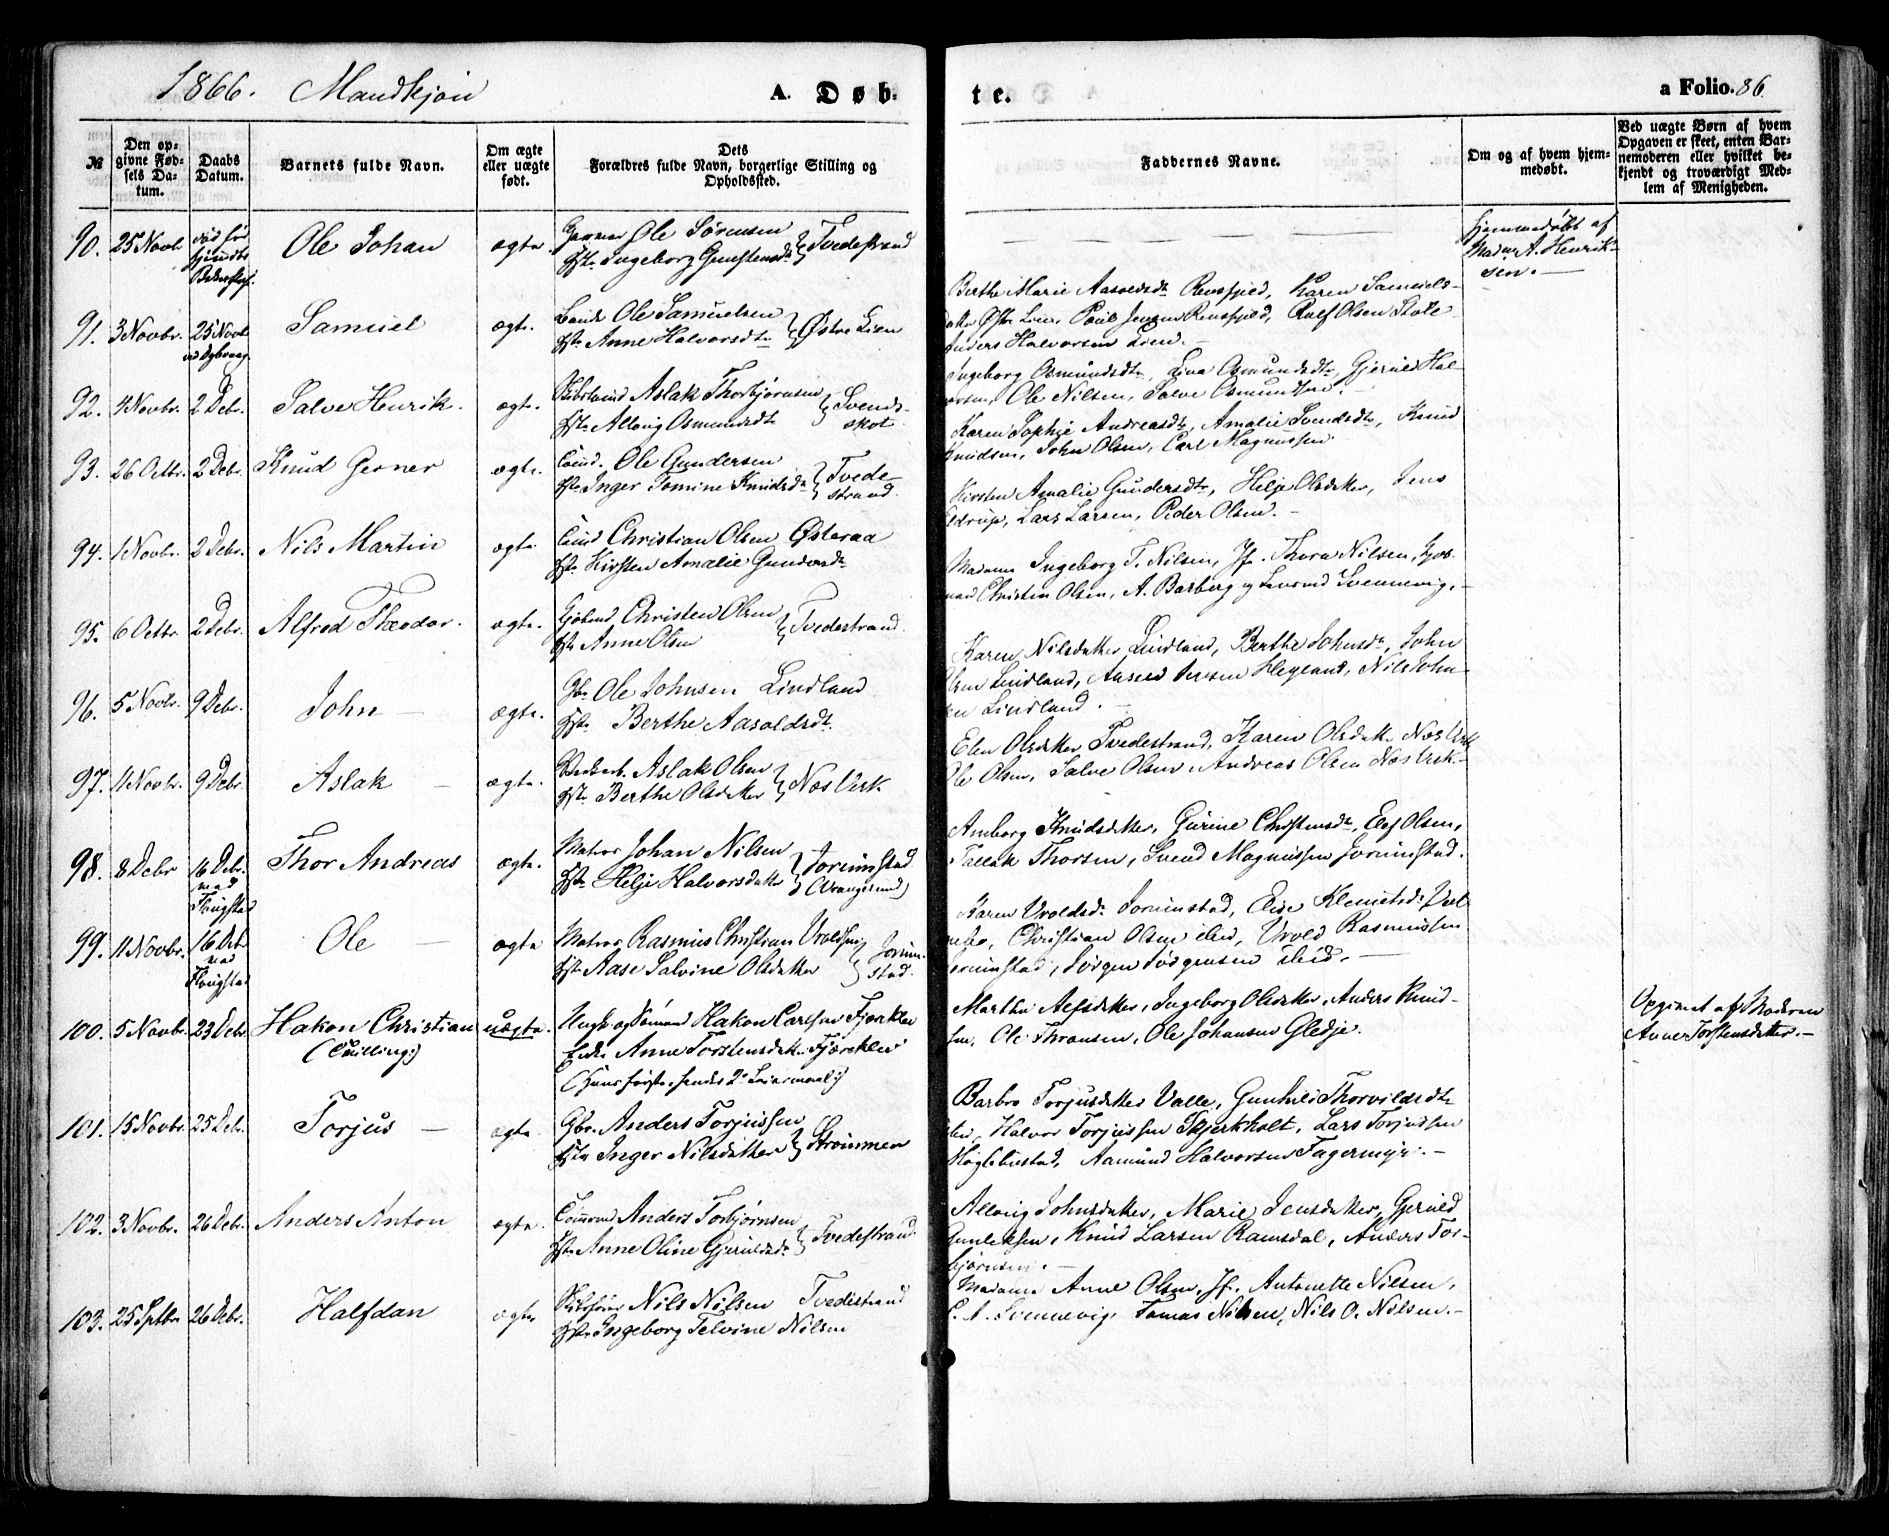 1866. Mandkjøn A. Døb- te. a Folio. 86
№ Den opgivne Fødsels Datum. Daabs Datum. Barnets fulde Navn. Om ægte eller uægte født. Dets Forældres fulde Navn, borgerlige Stilling og Opholdssted. Faddernes Navne. Om og af hvem hjemmedøbt. Ved uægte Børn af hvem Opgaven er skeet, enten Barnemoderen eller hvilket bekjendt og troværdigt Medlem af Menigheden.
90. 25 Novbr Ole Johan ægte Ole Sørensen
Ingeborg Gunstensdtr } Tvedestrand
Hjemmedøbt af
Madm A. Henrik-
sen. —
91. 3 Novbr. 25 Novbr Samuel ægte. Ole Samuelsen
Anne Halvorsdtr } Østre Lien
Berthe Marie Aasoldsdtr Rensfjed, Karen Samuels-
datter Østre Lien, Poul Jensen Rensfjed, Rolf Olsen Stole
Anders Halvorsen Lien. —
92. 4 Novbr. 2 Debr. Salve Henrik. ægte. Aslak Thorbjørnsen
Hst: Allovig Osmundsdtr } Svends-
skot
Ingeborg Osmundsdtr, Lina Osmundsdtr, Gjeruld Hal-
vorsen, Ole Nilsen, Salve Osmundsen. —
93. 26 Octbr. 2 Debr. Knud Gerner ægte. Ole Gundersen
Hst: Inger Tomine Knudsdtr } Tvede-
strand.
Karen Sophie Andreasdtr, Amalie Svendsdtr, Knud
Knudsen, John Olsen, Carl Magnussen
94. 1 Novbr. 2 Debr. Nils Martin ægte. Christian Olsen Østeraa
Hst: Kirsten Amalie Gundersdtr
Kirsten Amalie Gundersdtr, Helje Olsdatter, Jens
Eldrup, Lars Larsen, Peder Olsen. —
95. 6 Octbr. 2 Debr. Alfred Theodor. ægte. Christen Olsen
Hst: Anne Olsen } Tvedestrand.
Madame Ingeborg T. Nilsen, Jf. Thora Nilsen, Kjøb-
mand Christen Olsen, A. Barberg og Svennevig. —
96. 5 Novbr. 9 Debr. John — ægte. Gbr. Ole Johnsen Lindland
Hst: Berthe Aasoldsdtr.
Karen Nilsdatter Lindland, Berthe Johnsdtr, John
Olsen Lindland, Jensen Hegland, Nils John-
sen Lindland. —
97. 11 Novbr. 9 Debr. Aslak — ægte. Aslak Olsen
Hst: Berthe Olsdatter } Næs Verk
Elen Olsdatter Tvedestrand, Karen Olsdatter Næs Verk
Ole Olsen, Salve Olsen, Andreas Olsen Næs Verk. —
98. 8 Debr 16 Debr. Thor Andreas ægte. Matros Johan Nilsen
Hst: Helje Halvorsdatter } Jorunstad
(Vrangesund)
Amborg Knudsdatter, Gurine Christensdtr, Elef Olsen,
Tallak Thorsen, Svend Magnussen Jorunstad.
99. 11 Novbr. Ole — ægte Matros Rasmus Christian Uroldsen
Hst: Aase Salvine Olsdatter } Jorun-
stad.
Karen Uroldsdtr Jorunstad, Elise Klemetsdtr
Christian Olsen ibid, Urold Rasmussen
Jorunstad, Jørgen Jørgensen ibid. —
100. 5 Novbr. 23 Debr. Hakon Christian
(Tvilling:) uægte. Ungk. og Sømand Hakon Carlsen Fjærkleiv
Enke Anne Torstensdatter Fjærkleiv
(Hans første, hendes 2. Leiermaal:)
Marthe Alfsdatter, Ingeborg Olsdatter, Anders Knud-
sen, Ole Thronsen, Ole Johansen Gledje.
Opgivet af Moderen
Anne Torstensdatter. —
101. 15 Novbr. 25 Debr. Torjus — ægte. Gbr. Anders Torjussen
Hst: Inger Nilsdatter } Strømmen
Barbro Torjusdatter Valle, Gunhild Thorvildsdtr
ibid, Halvor Torjussen Skjerkholt, Lars Torjussen
Aamund Halvorsen Fagermyr. —
102. 3 Novbr. 26 Debr. Anders Anton ægte. Tømrmd Anders Torbjørnsen
Hst: Anne Oline Gjeruldsdtr } Tvedestrand.
Allovig Johnsdatter, Marie Jensdatter, Gjeruld
Gunleksen, Knud Larsen Ramsdal, Anders Tor-
bjørnsen. —
103. 25 Septbr. 26 Debr. Halfdan ægte Skibsfører Nils Nilsen Tvedestrand
Hst: Ingeborg Telvine Nilsen
Madame Anne Olsen, Jf. Antonette Nilsen,
Svennevig, Tomas Nilsen, Nils O. Nilsen. —